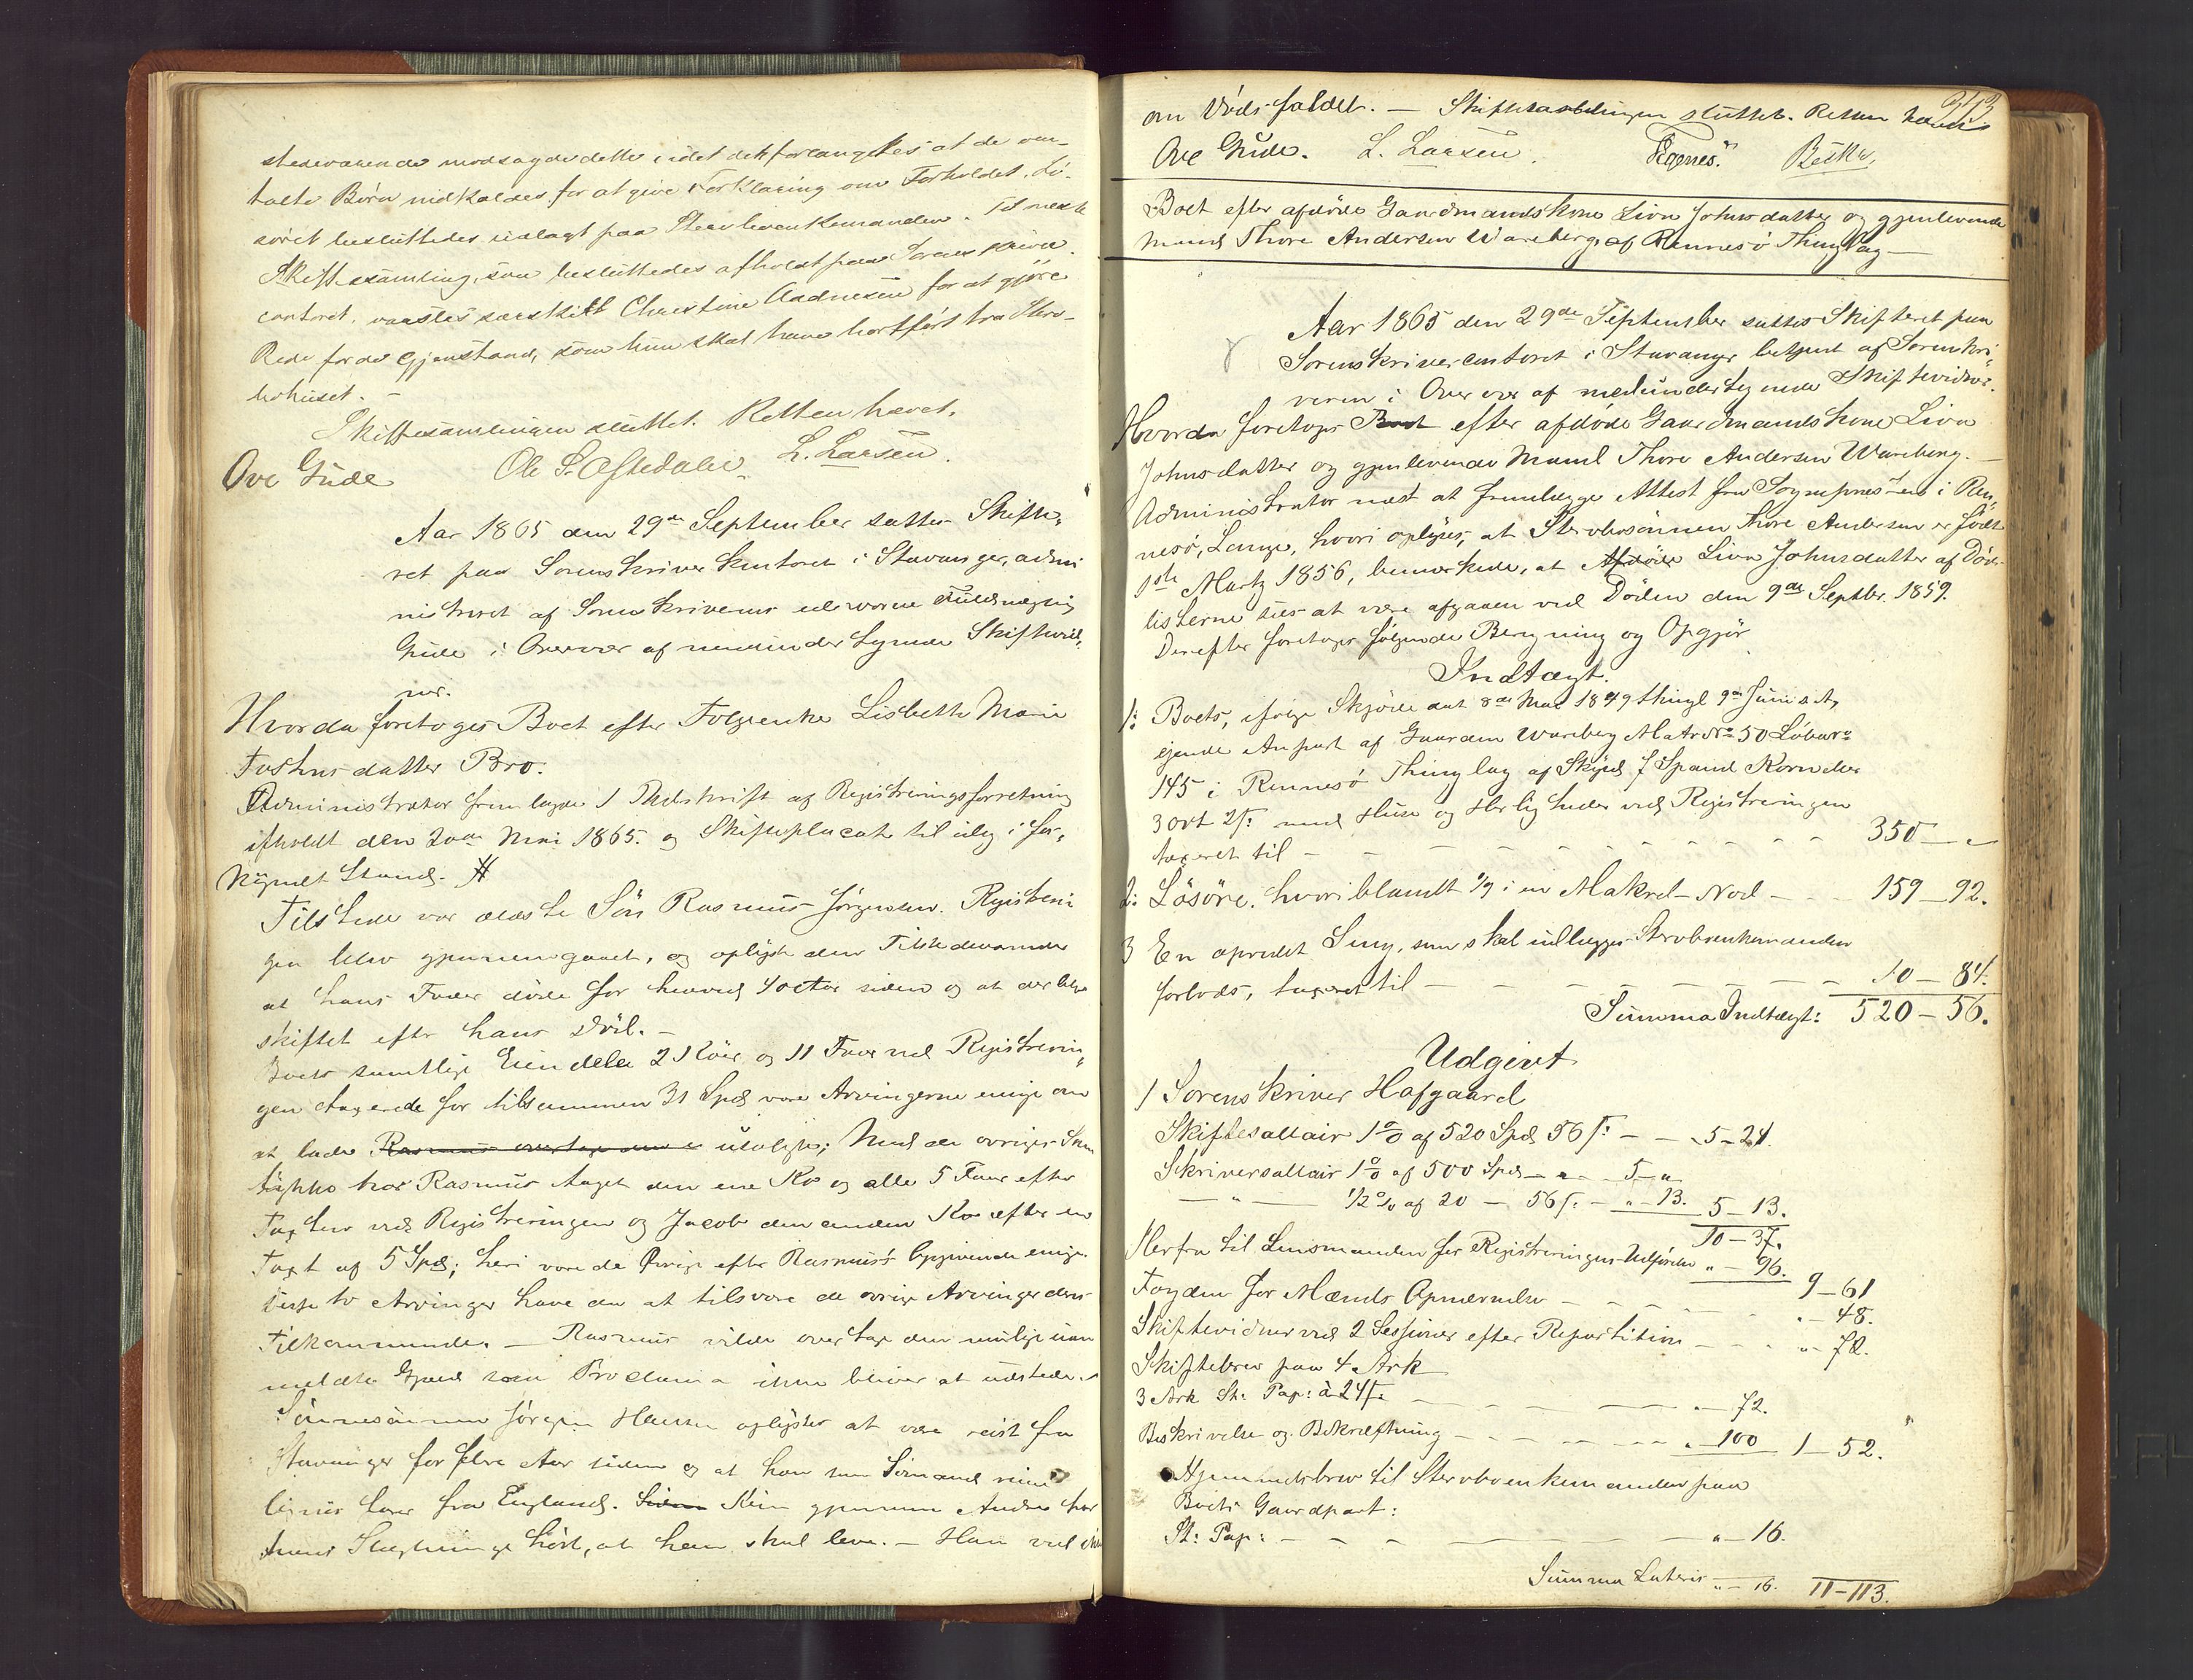 stedeværende modsagde dette, idet det forlangtes at de om-
talte Børn indkaldes for at give Forklaring om Forholdet. Lø-
søret besluttedes udlagt paa Stervboenkemanden. Til næste
Skiftesamling, som besluttedes afholdt paa Sorenskriver
contoret, varsles særskilt Christine Aadnesen for at gjöre
Rede for de Gjenstand, som hun skal have bortfört fra Sterv-
bohuset. -
Skiftesamlingen sluttet. Retten hævet.
Ove Gude Ole S. Oftedahl L. Larsen.
Aar 1865 den 29de September sattes Skifte-
ret paa Sorenskriver Kontoret i Stavanger, admi
nistreret af Sorenskriverens edsvorne Fuldmægtig
Gude i Overvær af medundertegnede Skiftevid-
ner.
Hvorda foretoges Boet efter Folgeenke Lisbeth Marie
datter Bro.
Administrator fremlagde 1 Udskrift af Registreringsforretning
afholdt den 20de Mai 1865. og Skifteplacat til idag i for-
kyndt Stand. #
Tilstede var ældste Sön Rasmus Jörgensen. Registerin
gen blev gjennemgaaet, og oplyste den Tilstedeværende
at hans Fader döde for henved 40 Aar siden og at der blev
skiftet efter hans Död. -
Boets samtlige Eiendele 2 Köer og 11 Faar ved Registrerin-
gen taxerede for tilsammen 31 Spd vare Arvingerne enige om
at lade Rasmus overtage dem udligne; Med de övriges Sam
tykke har Rasmus taget den ene Ko og alle 5 Faar efter
Taxten ved Registreringen og Jacob den anden Ko efter en
Taxt af 5 Spd; heri vare de Övrige efter Rasmus's Opgivende enige.
Disse to Arvinger have da at tilsvare de övrige Arvinger deres
Tilkommende. - Rasmus vilde overtage den mulige uan
meldte Gjæld som Proclama ikke bliver at udstede.
Sönnesönnen Jörgen Hansen oplystes at være reist fra
Stavanger for flere Aar siden og at han som Sömand
farer fra England. Siden Kun gjennem Andre har
hans Slægtninge hört, at han skal leve. - Han ved ikke
313
om Dödsfaldet. - Skiftesamlingen sluttet. Retten hævet
Ove Gude. L. Larsen.
Boet efter afdöde Gaardmandskone Liva Johnsdatter og gjenlevende
Mand Thore Andersen Wareberg af Rennesö Thinglag -
Aar 1865 den 29de September sattes Skifteret paa
Sorenskrivercontoret i Stavanger betjent af Sorenskri-
veren i Overvær af medundertegnede Skiftevidner.
Hvorda foretoges Boet efter afdöde Gaardmandskone Liva
Johnsdatter og gjenlevende Mand Thore Andersen Wareberg. -
Administrator næst at fremlægge Attest fra Sognepræsten i Ren-
nesö, Lange, hvori oplyses, at Stervbosönnen Thore Andersen er födt
1ste Martz 1856, bemærkede, at Afdöde Liva Johnsdatter af Döds-
listerne sees at være afgaaen ved Döden den 9de Septbr. 1859.
Derefter foretoges fölgende Beregning og Opgjör
Indtægt.
1: Boets, ifölge Skjöde dat 8de Mai 1849 thingl 9de Juni s. A.
ejende Anpart af Gaarden Wareberg Matr No 50 Löbenr
145 i Rennesö Thinglag af Skyld 7 Spand Korn eller
3 Ort 2 s. med Huse og Herligheder ved Registreringen
taxeret til - - - 350 - "
2: Lösöre, hvoriblandt 1/9 i en Makrel-Nod - - 159 - 92.
3 En opredet Seng, som skal udlægges Stervboenkemanden
forlods, taxeret til - - - 10 - 84.
Summa Indtægt: 520 - 56.
Udgivt
1 Sorenskriver Hafgaard
Skiftesallair 1% af 520 Spd 56 s: - - 5 - 24.
Skriversallair 1% af 500 Spd - " - 5 - "
- " - 1/2% af 20 - 56 s. - " - 13. 5 - 13.
10 - 37.
Herfra til Lensmanden for Registreringens Udförelse " - 96. 9 - 61
Fogden for Mænds Opnævnelse - - - " - 48.
Skiftevidner ved 2 Sessioner efter Repartition - - - " - 72.
Skiftebrev paa 4 Ark
3 Ark St: Pap: à 24 s. - - - " - 72.
Beskrivelse og Bekræftning - - - " - 100 1 - 52.
Hjemmelsbrev til Stervboenkemanden paa
Boets Gaardpart:
St: Pap: - - - " - 16.
Summa Lateris " - 16. 11 - 113.